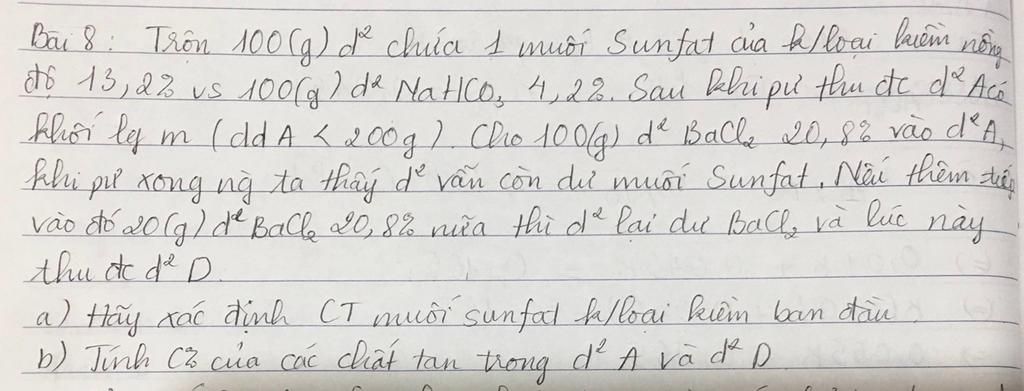 Bài 8: Trộn 100(g) d² chứa 1 muối Sunfat của k/loại kiềm nồng
độ 13,2% vs 100(g) d² NaHCO₃ 4,2%. Sau khi pứ thu đc d² A có
khối lg m (ddA < 200g). Cho 100(g) d² BaCl₂ 20,8% vào d² A,
khi pứ xong ng ta thấy d² vẫn còn dư muối Sunfat. Nếu thêm tiếp
vào đó 20(g) d² BaCl₂ 20,8% nữa thì d² lại dư BaCl₂ và lúc này
thu đc d² D.
a) Hãy xác định CT muối sunfat k/loại kiềm ban đầu
b) Tính C% của các chất tan trong d² A và d² D